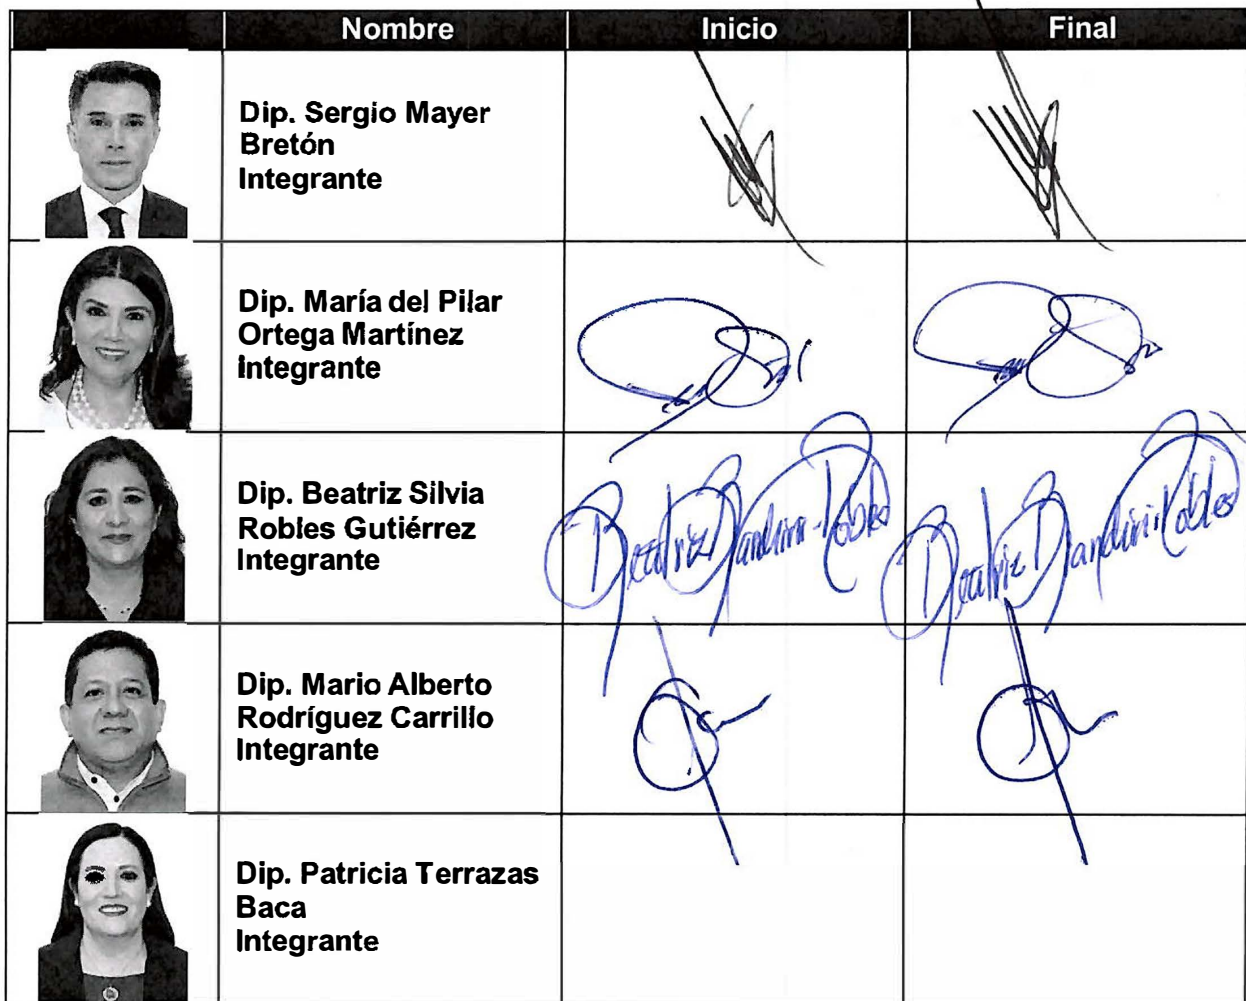 Nombre Inicio Final
Dip. Sergio Mayer
Bretón
Integrante
Dip. María del Pilar
Ortega Martínez
Integrante
Dip. Beatriz Silvia
Robles Gutiérrez
Integrante
Beatriz Robles
Beatriz Robles
Dip. Mario Alberto
Rodríguez Carrillo
Integrante
Dip. Patricia Terrazas
Baca
Integrante